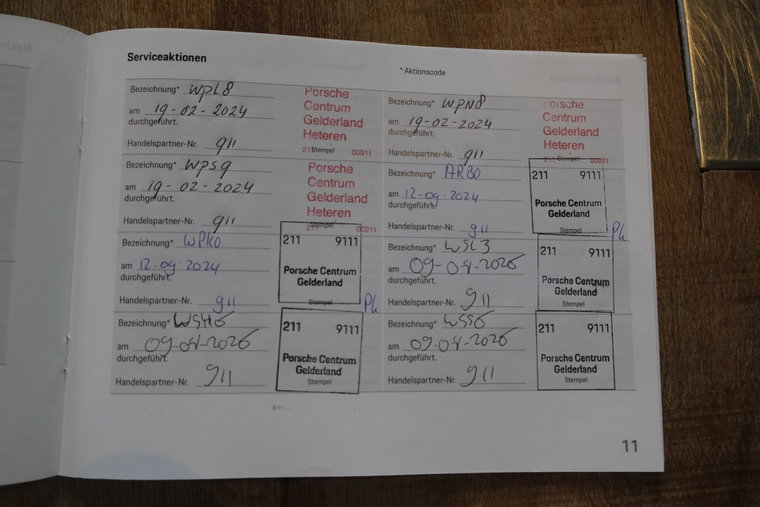 Serviceaktionen
* Aktionscode
Bezeichnung* WPL8
am 19-02-2024
durchgeführt.
Handelspartner-Nr. 911
Porsche
Centrum
Gelderland
Heteren
211 Stempel 00911
Bezeichnung* WPN8
am 19-02-2024
durchgeführt.
Handelspartner-Nr. 911
Porsche
Centrum
Gelderland
Heteren
211 Stempel 00911
Bezeichnung* WPS9
am 19-02-2024
durchgeführt.
Handelspartner-Nr. 911
Porsche
Centrum
Gelderland
Heteren
211 Stempel 00911
Bezeichnung* ARB0
am 12-09-2024
durchgeführt.
Handelspartner-Nr. 911
211 9111
Porsche Centrum
Gelderland
Stempel
Bezeichnung* WPK0
am 12-09-2024
durchgeführt.
Handelspartner-Nr. 911
211 9111
Porsche Centrum
Gelderland
Stempel
Bezeichnung* WSL3
am
durchgeführt.
Handelspartner-Nr. 911
211 9111
Porsche Centrum
Gelderland
Stempel
Bezeichnung*
am
durchgeführt.
Handelspartner-Nr. 911
211 9111
Porsche Centrum
Gelderland
Stempel
Bezeichnung* WSS6
am
durchgeführt.
Handelspartner-Nr. 911
211 9111
Porsche Centrum
Gelderland
Stempel
11